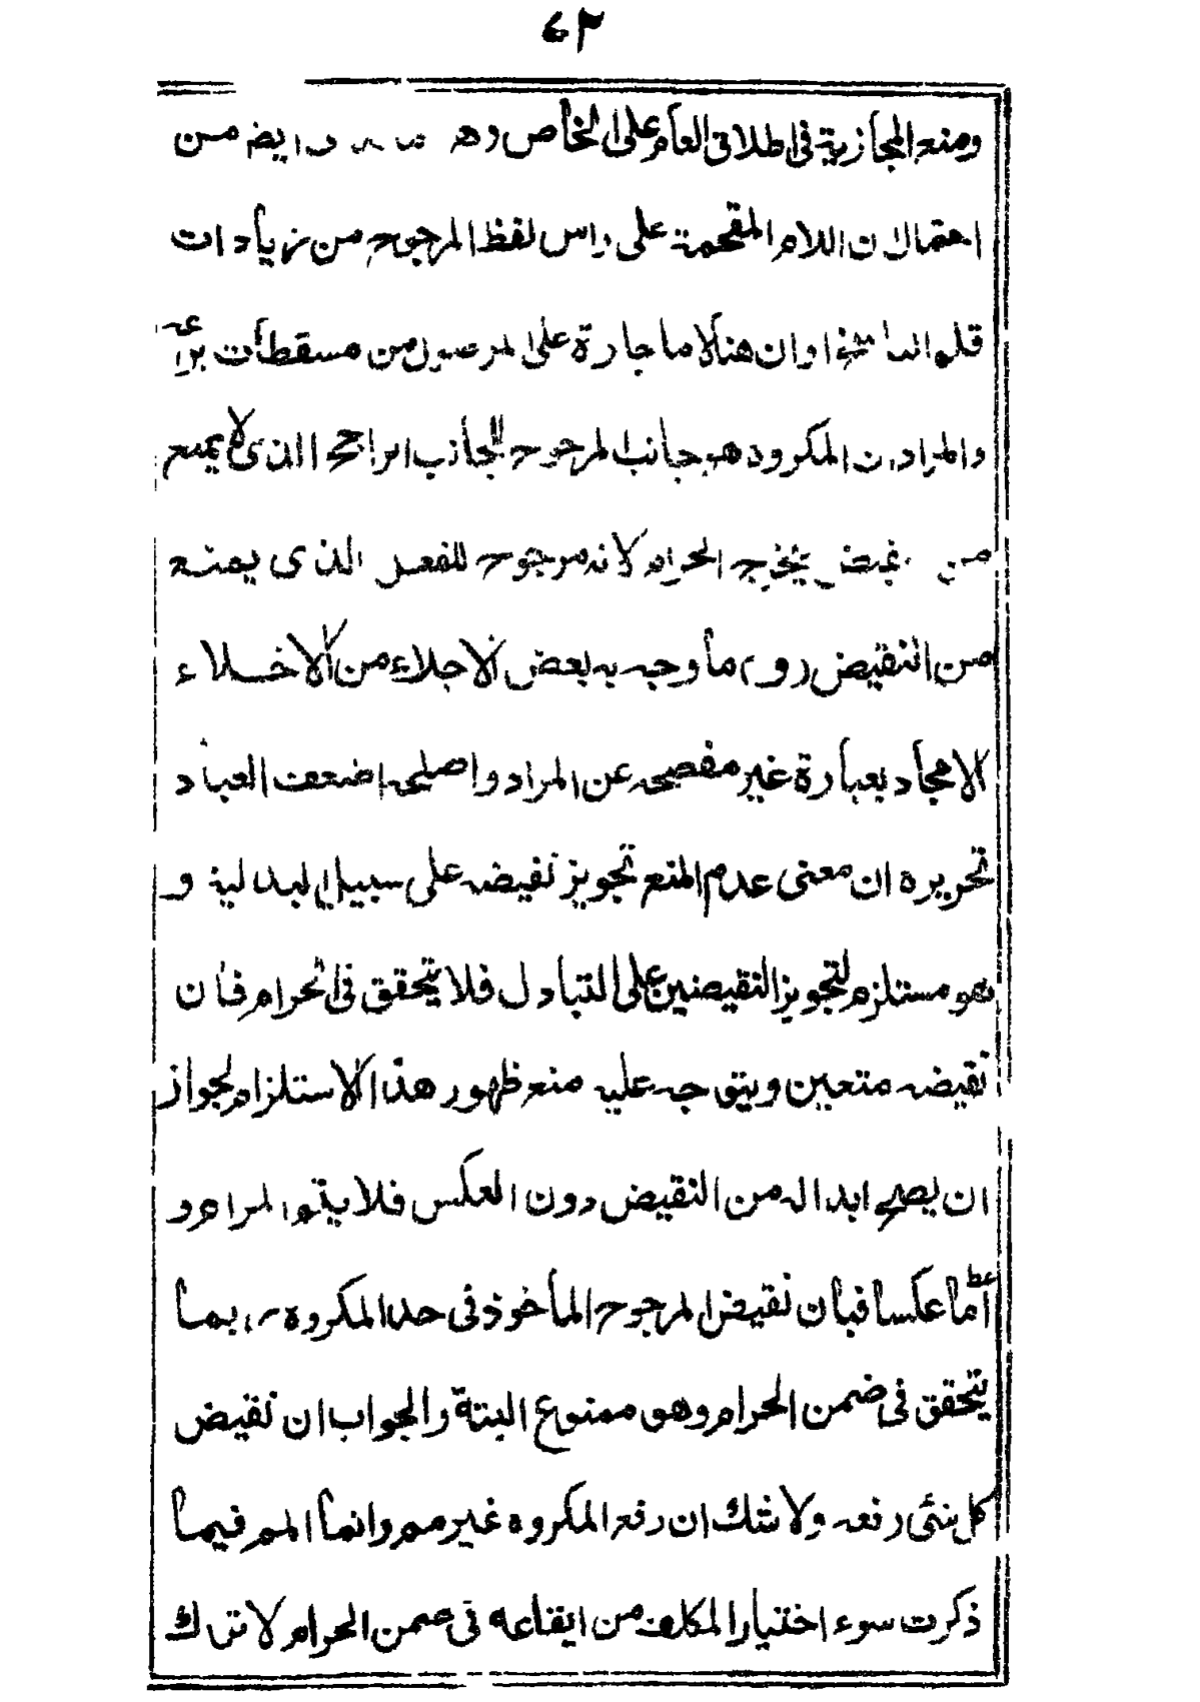 ٦٢
ومنع المجازية فى اطلاق العام على الخاص وايضه من
احتمال ان اللام المقحمة على راس لفظ المرجوح من زيادات
قلم وان هنالا ما جارة على الموصول من مسقطات
والمراد ان المكروه هو جانب المرجوح للجانب الراجح الذى لا يمنع
من يخرج الحرام لانه مرجوح للفعل الذى يمنع
من النقيض ما وجه به بعض الاجلاء من الاخلاء
الامجاد بعبارة غير مفصحه عن المراد واصلحه اضعف العباد
تحريره ان معنى عدم المنع تجويز نقيضه على سبيل البدلية و
هو مستلزم لتجويز النقيضين على التبادل فلا يتحقق فى الحرام فان
نقيضه متعين ويتوجه عليه منع ظهور هذا الاستلزام لجواز
ان يصح ابداله من النقيض دون العكس فلا يتم المرام و
اما عكسا فبان نقيض المرجوح المأخوذ فى حد المكروه ربما
يتحقق فى ضمن الحرام وهو ممنوع البتة والجواب ان نقيض
كل شئى رفعه ولا شك ان رفع المكروه غير مم وانما المم فيما
ذكرت سوء اختيار المكلف من ايقاعه فى ضمن الحرام لا ترك